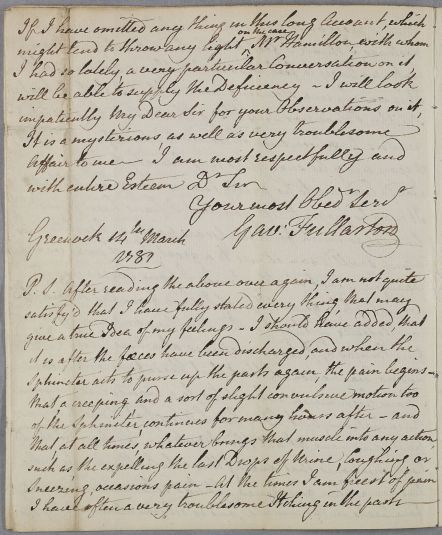 If I have omitted any thing in this long Account, which
might tend to throw any light on the case, Mr Hamilton, with whom
I had so lately, a very particular Conversation on it
will be able to supply the Deficiency – I will look
impatiently My Dear Sir for your Observations on it,
It is a mysterious, as well as very troublesome
Affair to me – I am most respectfully and
with entire Esteem Dr Sir
Your most Obedt Servt
Gav: Fullarton
Greenock 14th March
1787
P.S. After reading the above over again, I am not quite
satisfy'd that I have fully stated every thing that may
give a true Idea of my feelings – I should have added that
it is after the fæces have been discharged and when the
Sphincter acts to purse up the parts again, the pain begins –
that a creeping and a sort of slight convulsive motion too
of the Sphincter continues for many hours after – and
that, at all times, whatever brings that muscle into any action
such as the expelling the last Drops of Urine, Coughing or
Sneezing, occasions pain – At the times I am freest of pain
I have often a very troublesome Itching in the part